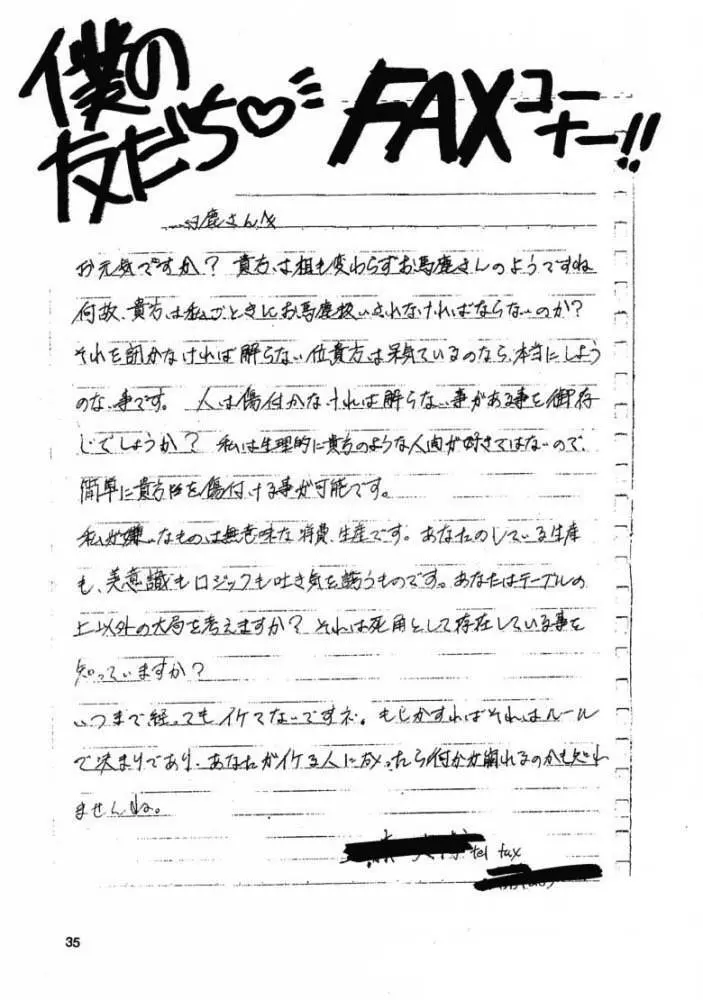 僕の
友だち♡
FAXコーナー!!
鹿さんへ
お元気ですか？貴方は相も変わらずお馬鹿さんのようですね
何故、貴方は私ごときにお馬鹿扱いされなければならないのか？
それを訊かなければ解らない位貴方は呆気ているのなら、本当にしよう
のない事です。人は傷付かなければ解らない事がある事を御存
じでしょうか？私は生理的に貴方のような人間が好きではないので、
簡単に貴方を傷付ける事が可能です。
私が嫌いなものは無意味な消費、生産です。あなたのしている生産
も、美意識もロジックも吐き気を誘うものです。あなたはテーブルの
上以外の大局を考えますか？それは死角として存在している事を
知っていますか？
いつまで経ってもイケてないですネ。もしかすればそれはルール
で決まりであり、あなたがイケる人になったら何かが崩れるのかも知れ
ませんね。
tel fax
35